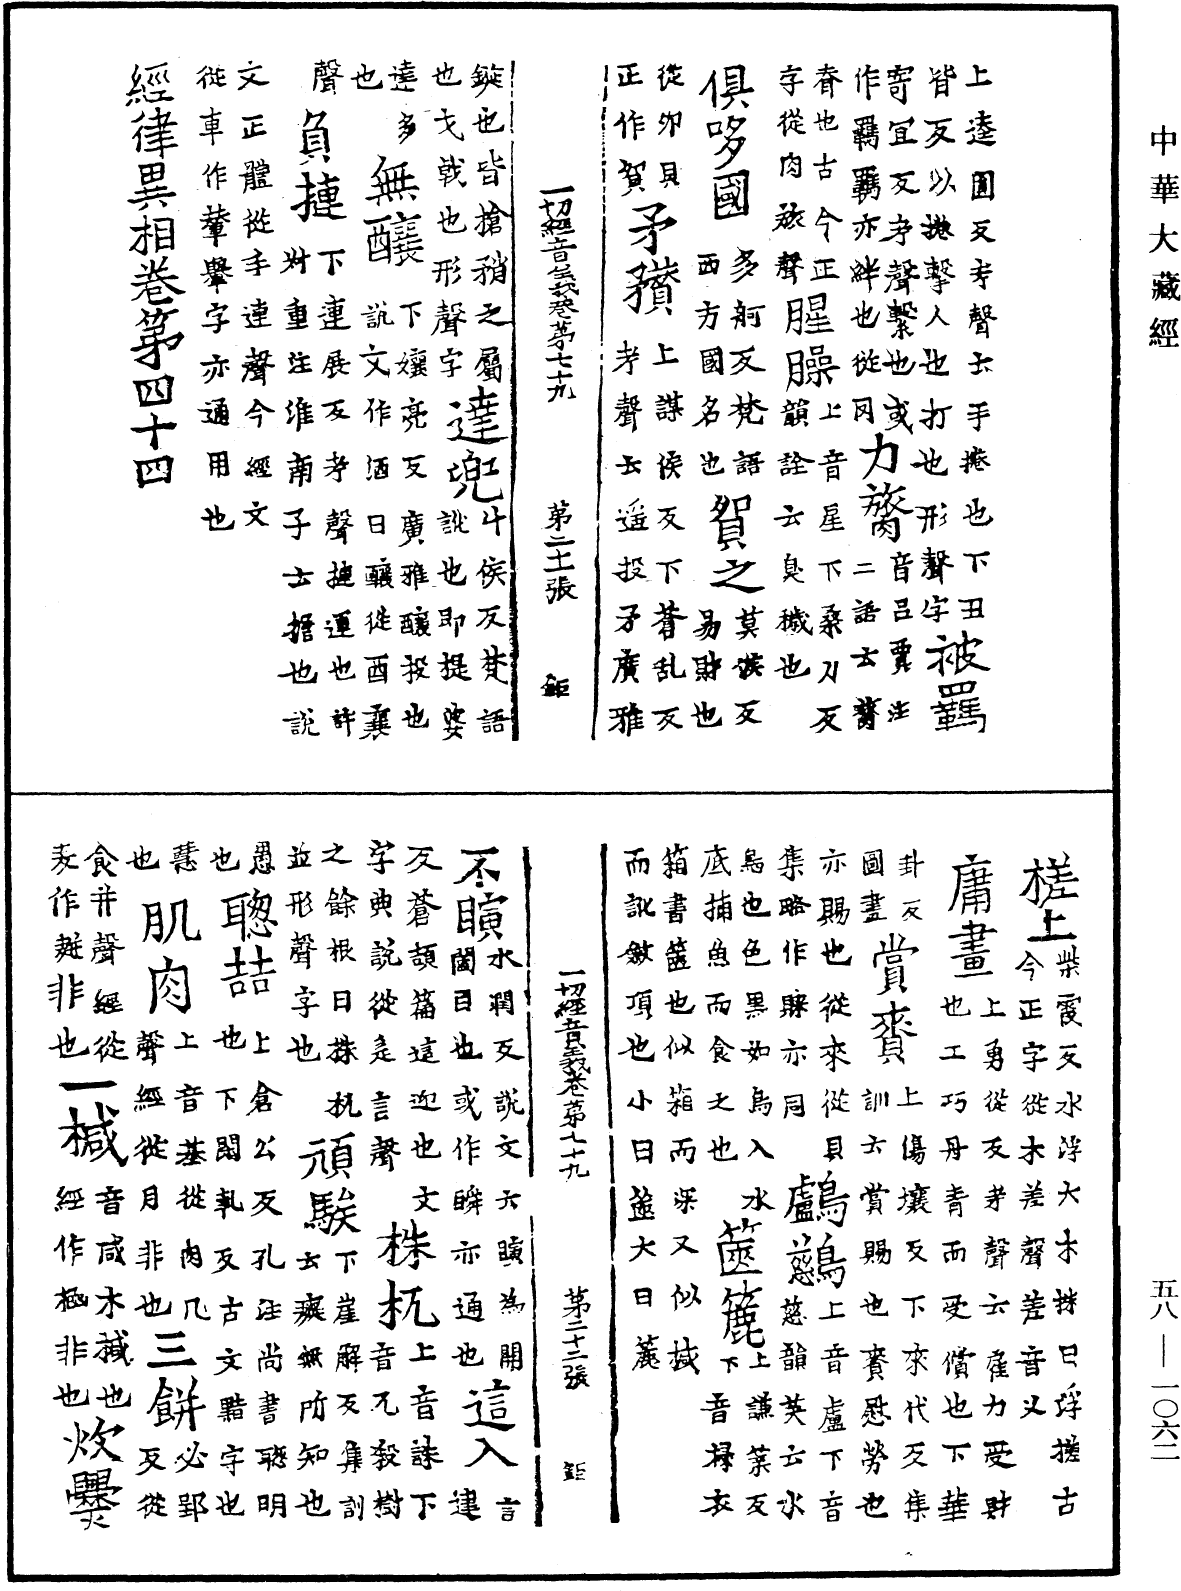 中華大藏經
上逵圓反考聲云手捲也下丑
皆反以拳擊人也打也形聲字被羈
寄宜反考聲繫也或
作羈羇亦絆也從冈力膂音呂賈注
脊也古今正二語云膂
字從肉旅聲腥臊上音星下桑刀反
韻詮云臭穢也
俱哆國多舸反梵語
西方國名也貿之莫候反
易財也
從夘貝
正作貿矛䂎上謀侯反下蒼乱反
考聲云遥投矛廣雅
一切經音義卷第七十九 第二十一張 鉅
鏦也皆搶矟之屬達兜斗侯反梵語
也戈戟也形聲字訛也即提婆
達多無釀下孃亮反廣雅釀投也
也說文作酒曰釀從酉襄
聲負摙下連展反考聲摙運也許
叔重注淮南子士擔也說
文正體從手連聲今經文
從車作輦轝字亦通用也
經律異相卷第四十四
槎上柴霞反水浮大木株曰浮槎古
今正字從木差聲差音义
庸畫上勇從反考聲云雇力受財
也工巧丹青而受償也下華
卦反
圖畫賞賚上傷壤反下來代反集
訓云賞賜也賚慰勞也
亦賜也從來從貝
集略作睞亦同鸕鷀上音盧下音
慈韻英云水
烏也色黑如烏入水
底捕魚而食之也篋簏上謙葉反
下音祿衣
箱書篋也似箱而深又似棫
而訛斂項也小曰篋大曰簏
一切經音義卷第七十九 第二十二張 鉅
不瞚水潤反說文云瞚為開
闔目也或作瞬亦通也這入言
建
反蒼頡篇這迎也文
字典說從辵言聲株杌上音誅下
音兀殺樹
之餘根曰株杌
並形聲字也頑騃下崖解反集訓
云癡無所知也
愚也聰喆上倉公反孔注尚書聰明
也下閑軋反古文點字也
慧
也肌肉上音基從肉几
聲經從月非也三餅必郢
反從
食并聲經從
麦作䴵非也一椷音咸木椷也
經作極非也炊爨
五八—一〇六二